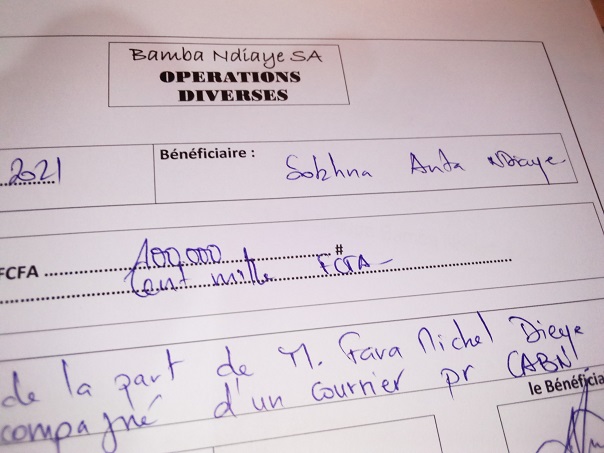 Bamba Ndiaye SA
OPERATIONS
DIVERSES
2021
Bénéficiaire : Sokhna Anta Ndiaye
FCFA 100,000 #
Cent mille FCFA -
de la part de M. Fara Michel Dieye
compagné d'un courrier pr CABN
le Bénéficia